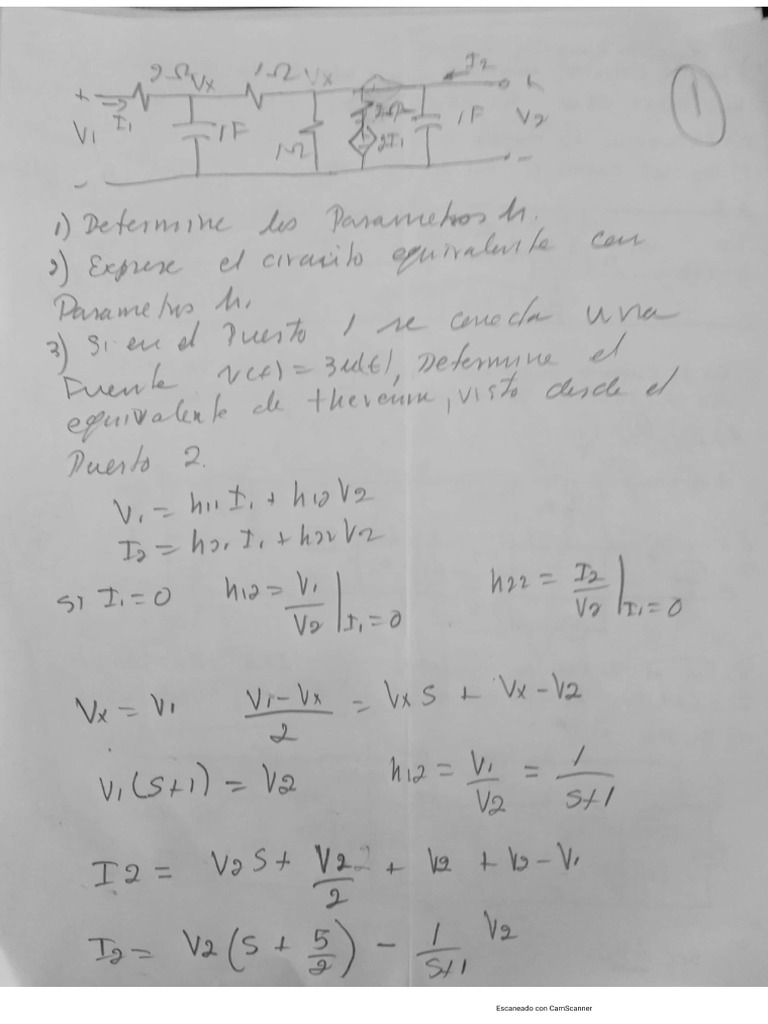 2Ω Vx 1Ω Vx I2
+ I1 1F 1Ω 2Ω 2I1 1F V2 +
V1
- -
1
1) Determine los Parametros h.
2) Exprese el circuito equivalente con
Parametros h.
3) Si en el Puerto 1 se conecta una
Fuente v(t) = 3u(t), Determine el
equivalente de thevenin, visto desde el
Puerto 2.
V1 = h11 I1 + h12 V2
I2 = h21 I1 + h22 V2
Si I1 = 0 h12 = V1/V2 | I1 = 0 h22 = I2/V2 | I1 = 0
Vx = V1 (V1 - Vx)/2 = Vx S + Vx - V2
V1 (S+1) = V2 h12 = V1/V2 = 1/(S+1)
I2 = V2 S + V2/2 + V2 + V2 - V1
I2 = V2 (S + 5/2) - 1/(S+1) V2
Escaneado con CamScanner